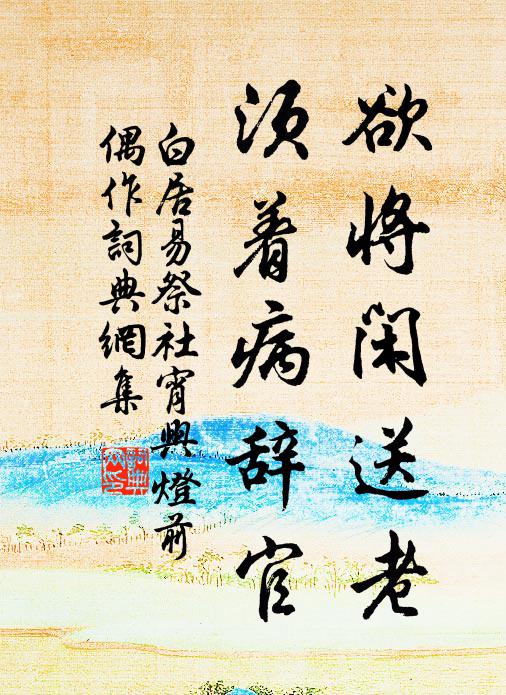 欲将闲送老
须着病辞官
白居易祭社宵興燈前
偶作詞典網集